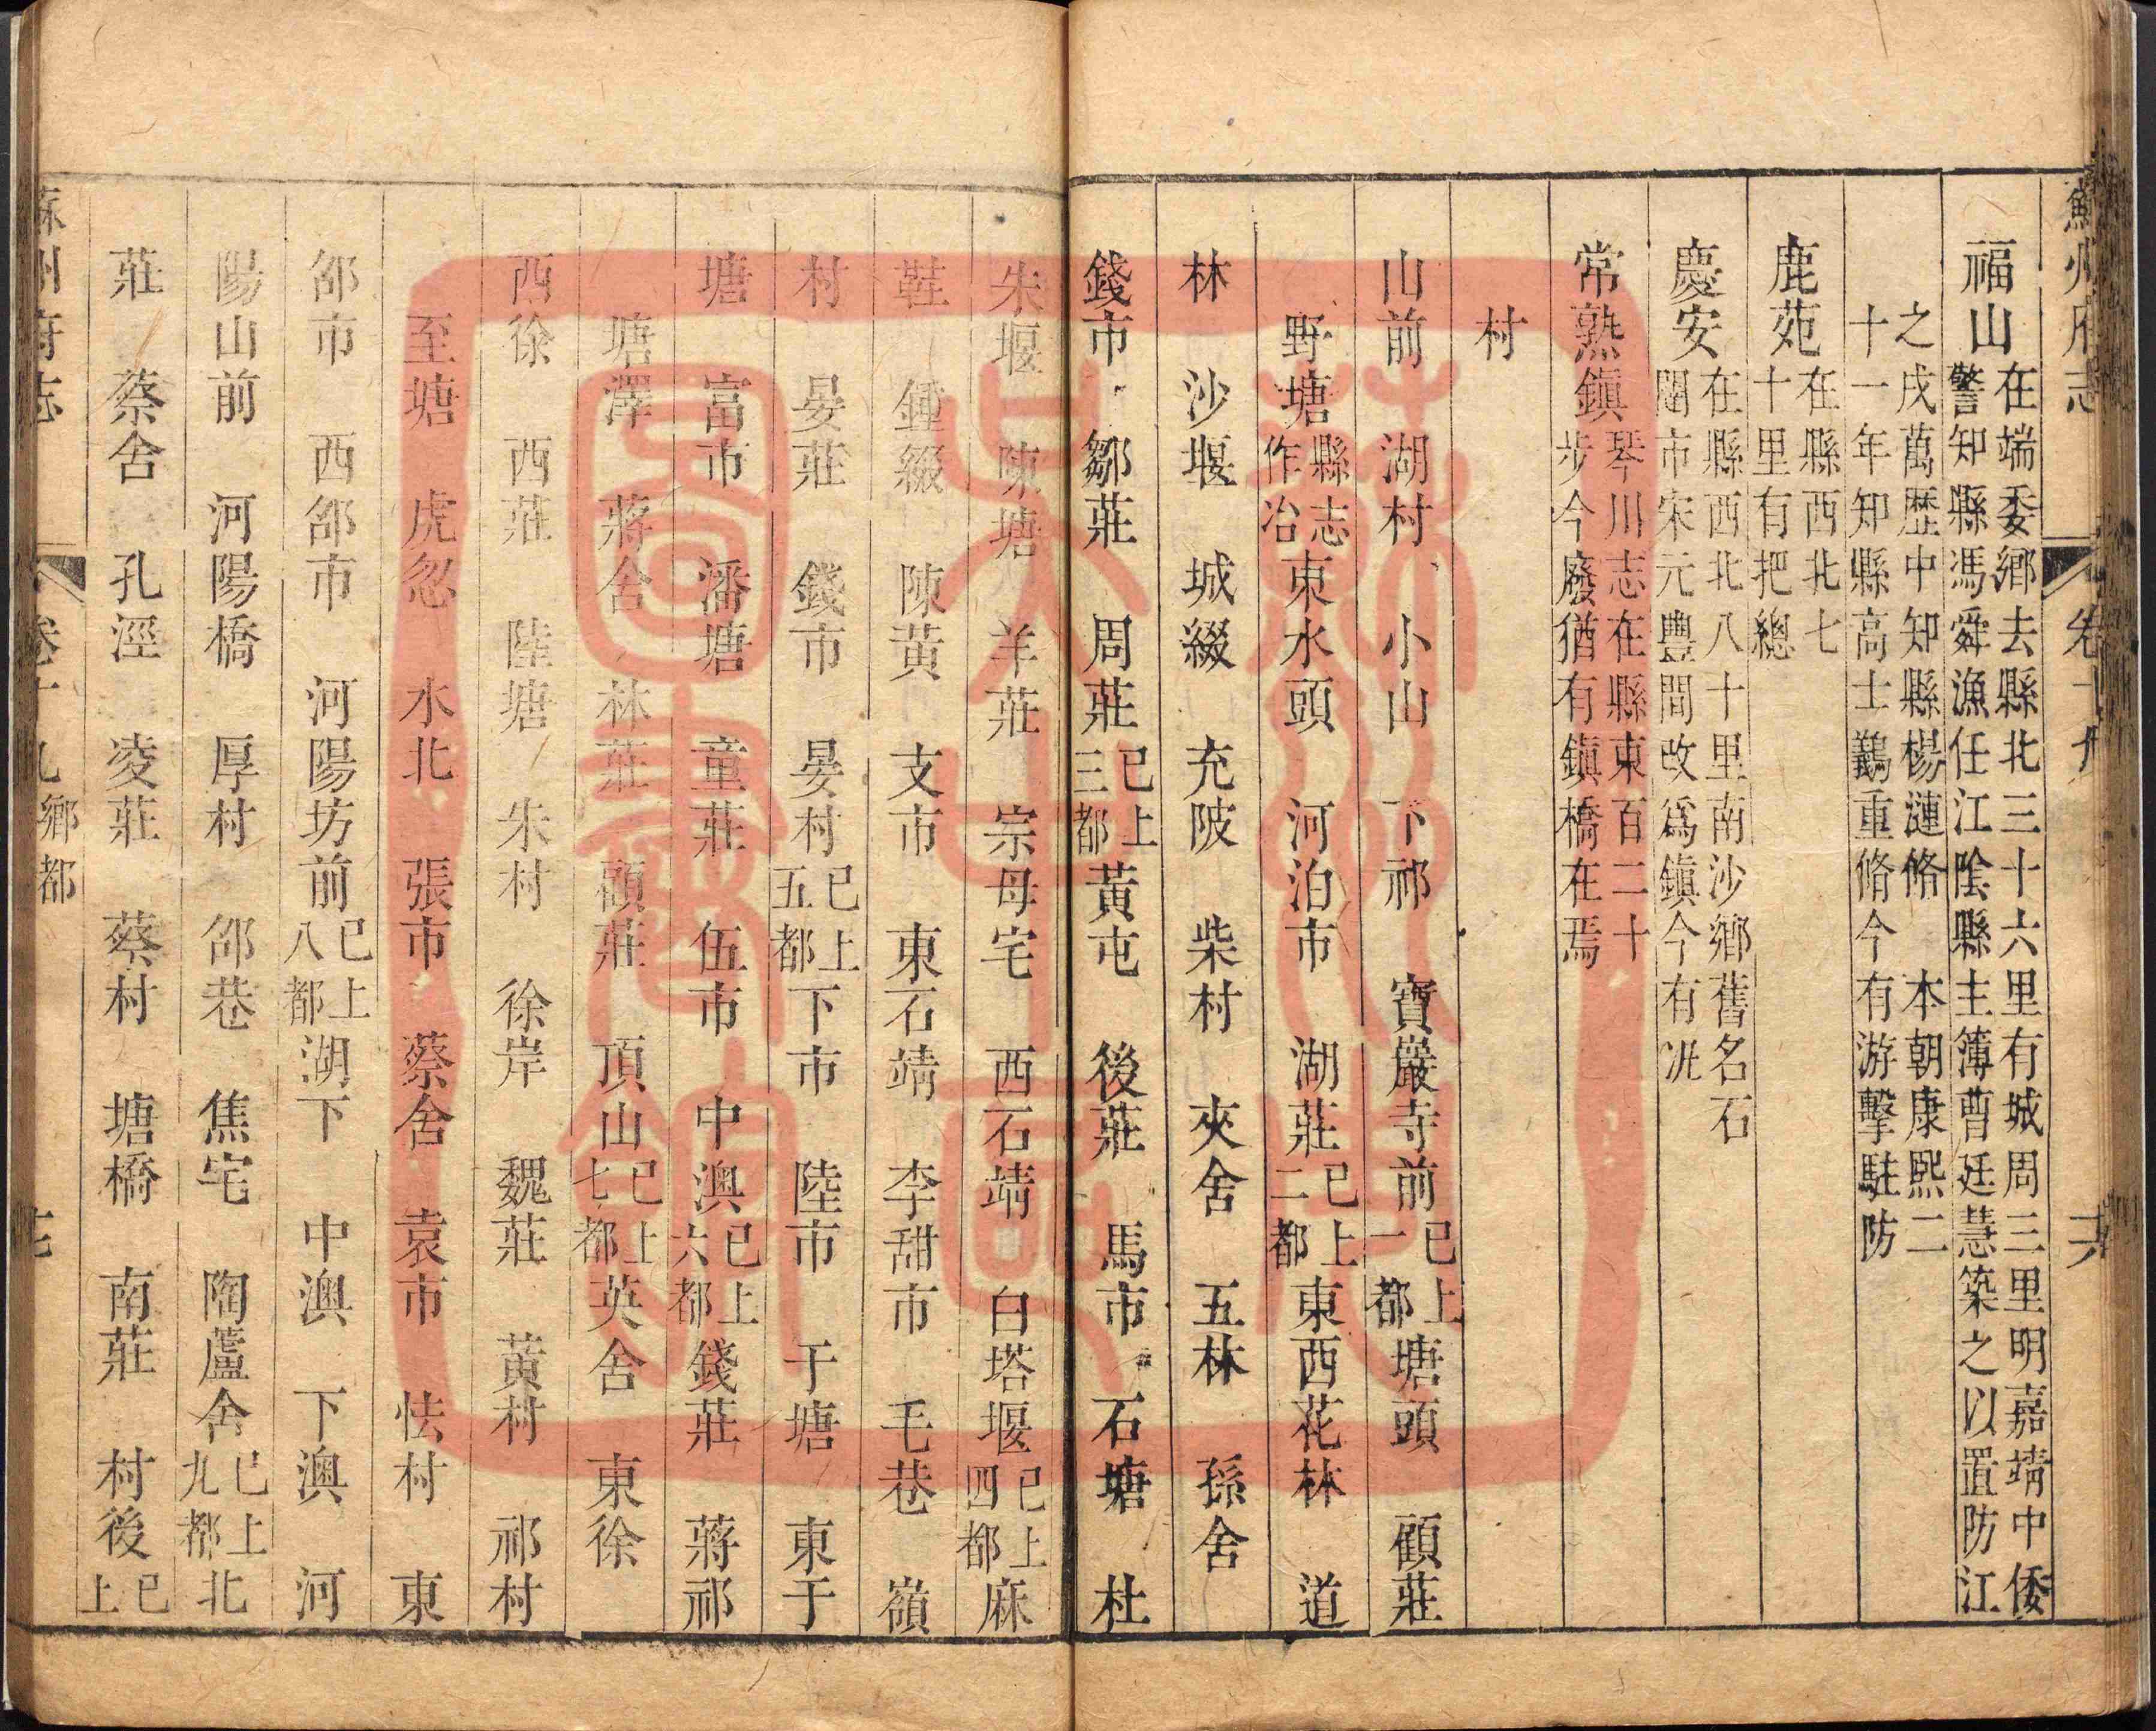 蘇州府志 卷十九
福山在端委鄉去縣北三十六里有城周三里明嘉靖中倭
警知縣馮舜漁任江陰縣主簿曹廷慧築之以置防江
之戍萬歷中知縣楊漣脩 本朝康熙二
十一年知縣高士鸃重脩今有游擊駐防
鹿苑在縣西北七
十里有把總
慶安在縣西北八十里南沙鄉舊名石
閉市宋元豐間改爲鎮今有汛
常熟鎮琴川志在縣東百二十
步今廢猶有鎮橋在焉
村
山前 湖村 小山 下祁 寶巖寺前已上一都塘頭 顧莊
野塘縣志作冶東水頭 河泊市 湖莊已上二都東西花林 道
林 沙堰 城綴 充陂 柴村 夾舍 五林 孫舍
錢市 鄒莊 周莊已上三都黃屯 後莊 馬市 石塘 杜
朱堰 陳塘 羊莊 宗母宅 西石靖 白塔堰已上四都麻
鞋 鍾綴 陳黃 支市 東石靖 李甜市 毛巷 嶺
村 晏莊 錢市 晏村已上五都下市 陸市 于塘 東于
塘 富市 潘塘 童莊 伍市 中澳已上六都錢莊 蔣祁
塘澤 蔣舍 林莊 顧莊 頂山已上七都英舍 東徐
西徐 西莊 陸塘 朱村 徐岸 魏莊 黃村 祁村
至塘 虎忽 水北 張市 蔡舍 袁市 怯村 東
郃市 西郃市 河陽坊前已上八都湖下 中澳 下澳 河
陽山前 河陽橋 厚村 郃巷 焦宅 陶蘆舍已上九都北
莊 蔡舍 孔涇 凌莊 蔡村 塘橋 南莊 村後已上
蘇州府志 卷十九 鄉都